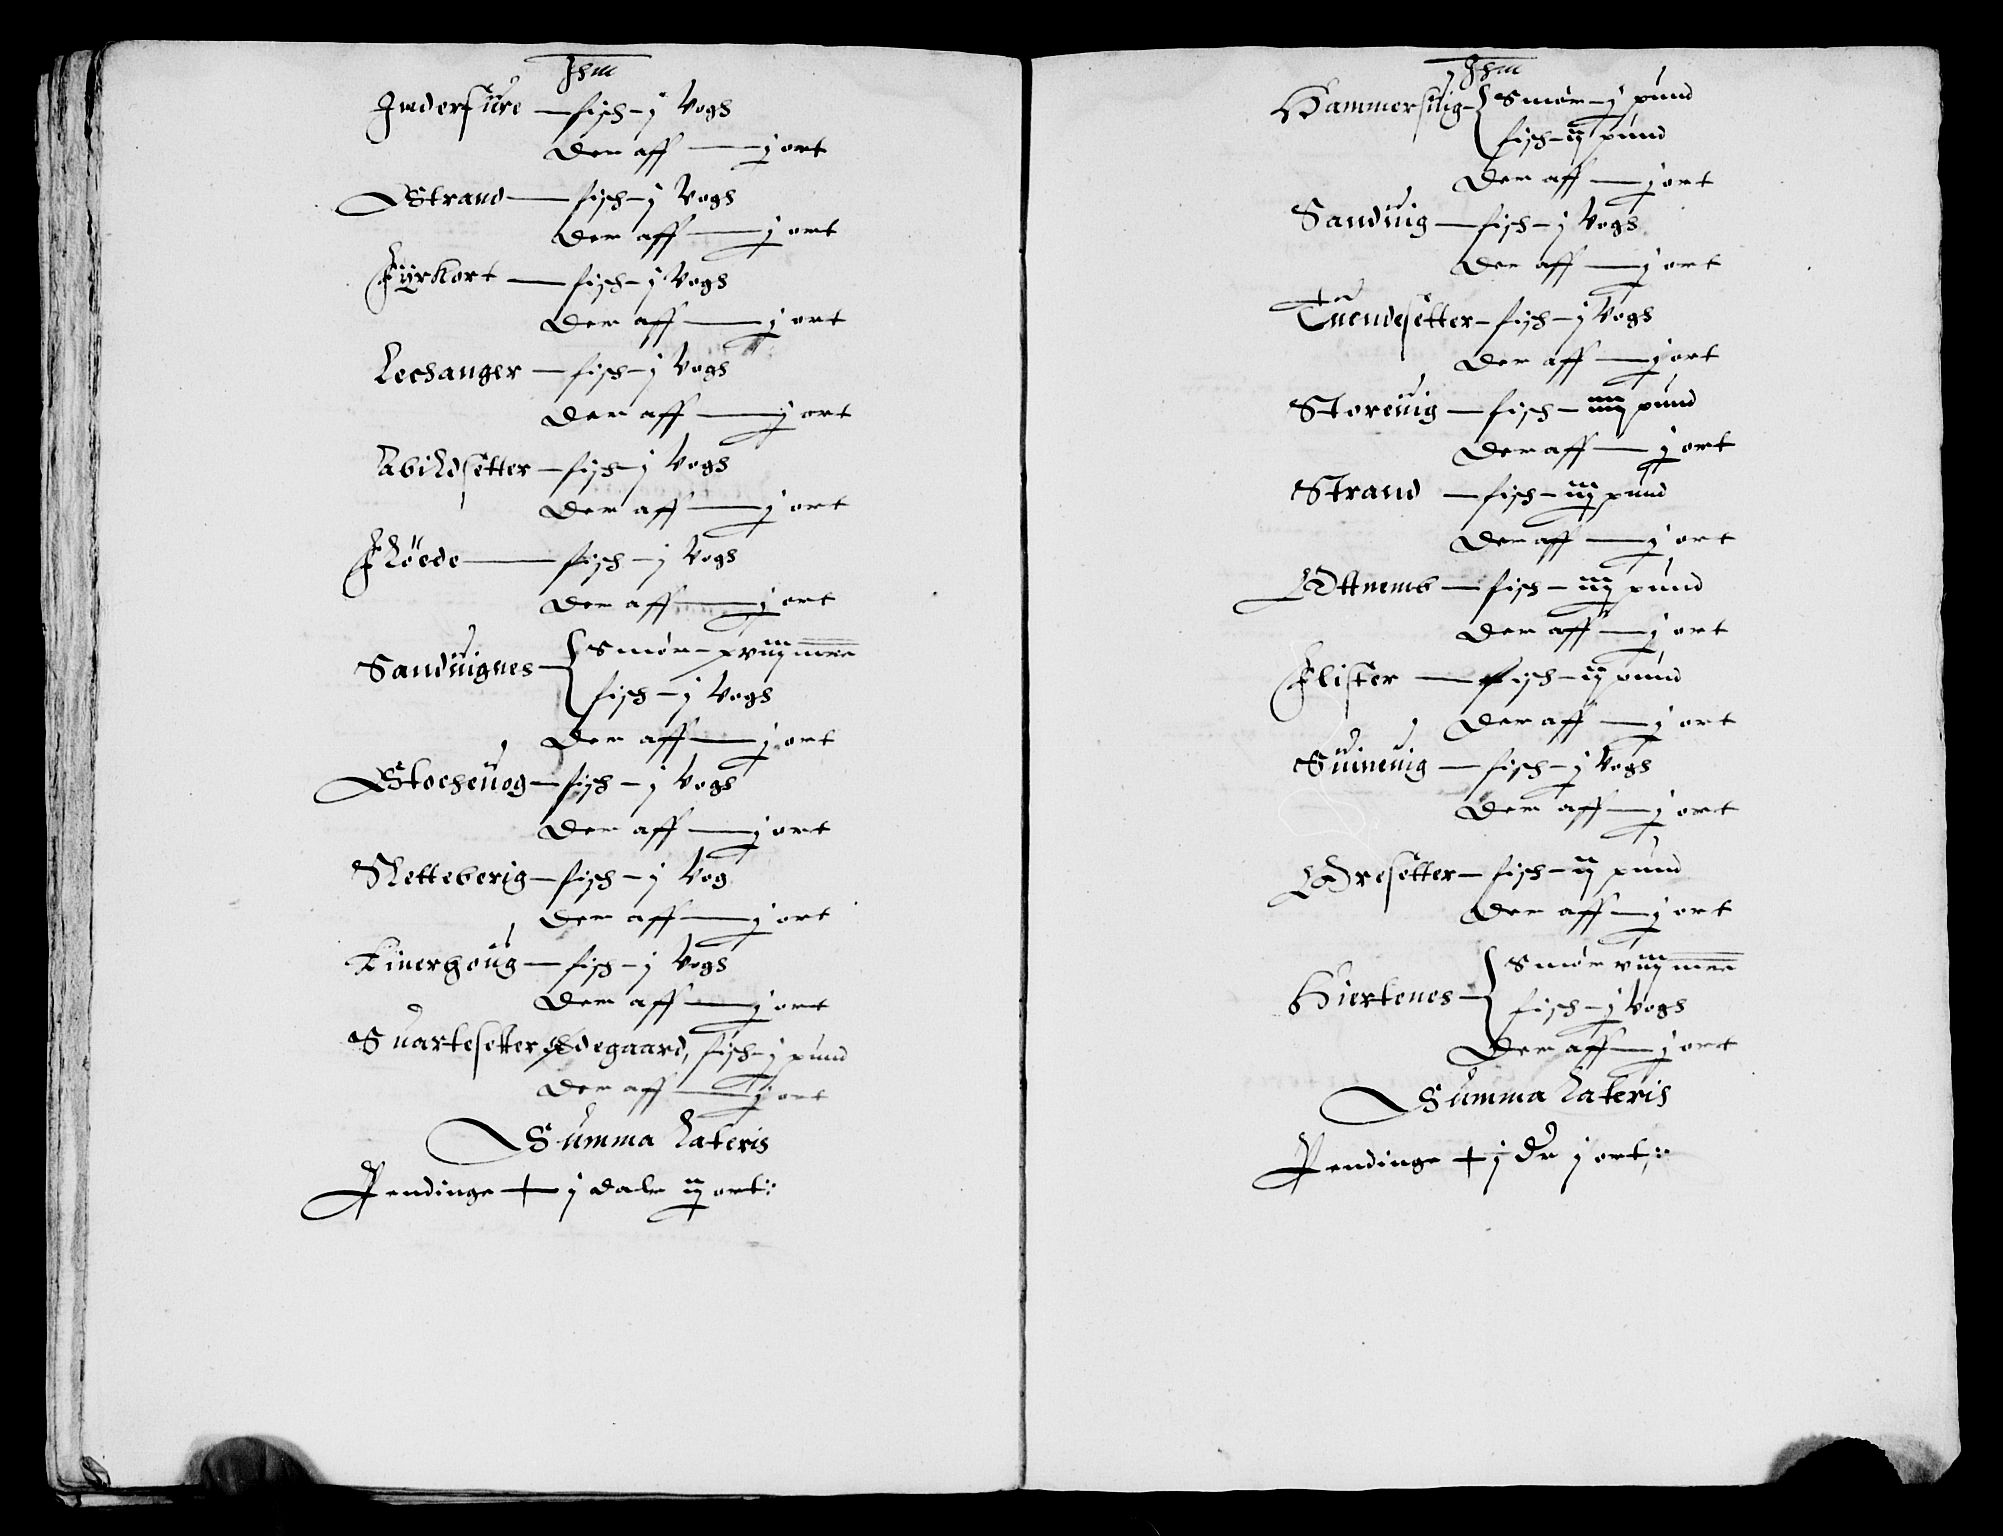 Jhm
Inderfure — fisch — j Vogs
Der aff — j ort
Strand — fisch — j Vogs
Der aff — j ort
Fyrkort — fisch — j Vogs
Der aff — j ort
Lechanger — fisch — j Vogs
Der aff — j ort
Abildsetter — fisch — j Vogs
Der aff — j ort
Flöede — fisch — j Vogs
Der aff — j ort
Sanduignes — Smör — xviij mrc
fisch — j Vogs
Der aff — j ort
Stocheuog — fisch — j Vogs
Der aff — j ort
Sletteberig — fisch — j Vog
Der aff — j ort
Kinerhoug — fisch — j Vogs
Der aff — j ort
Suartesetter Ødegaard, fisch — j pund
Der aff — j ort
Summa Lateris
Pendinge + j dalr ij ort
Jhm
Hammersuig — Smör — j pund
fisch — ij pund
Der aff — j ort
Sanduig — fisch — j Vogs
Der aff — j ort
Tuendesetter — fisch — j Vogs
Der aff — j ort
Storeuig — fisch — iiij pund
Der aff — j ort
Strand — fisch — iij pund
Der aff — j ort
Ottnemb — fisch — iij pund
Der aff — j ort
Flister — fisch — ij pund
Der aff — j ort
Suineuig — fisch — j Vogs
Der aff — j ort
Øresetter — fisch — ij pund
Der aff — j ort
Hiertenes — Smör viij mrc
fisch — j Vogs
Der aff — j ort
Summa Lateris
Pendinge + j Dr j ort